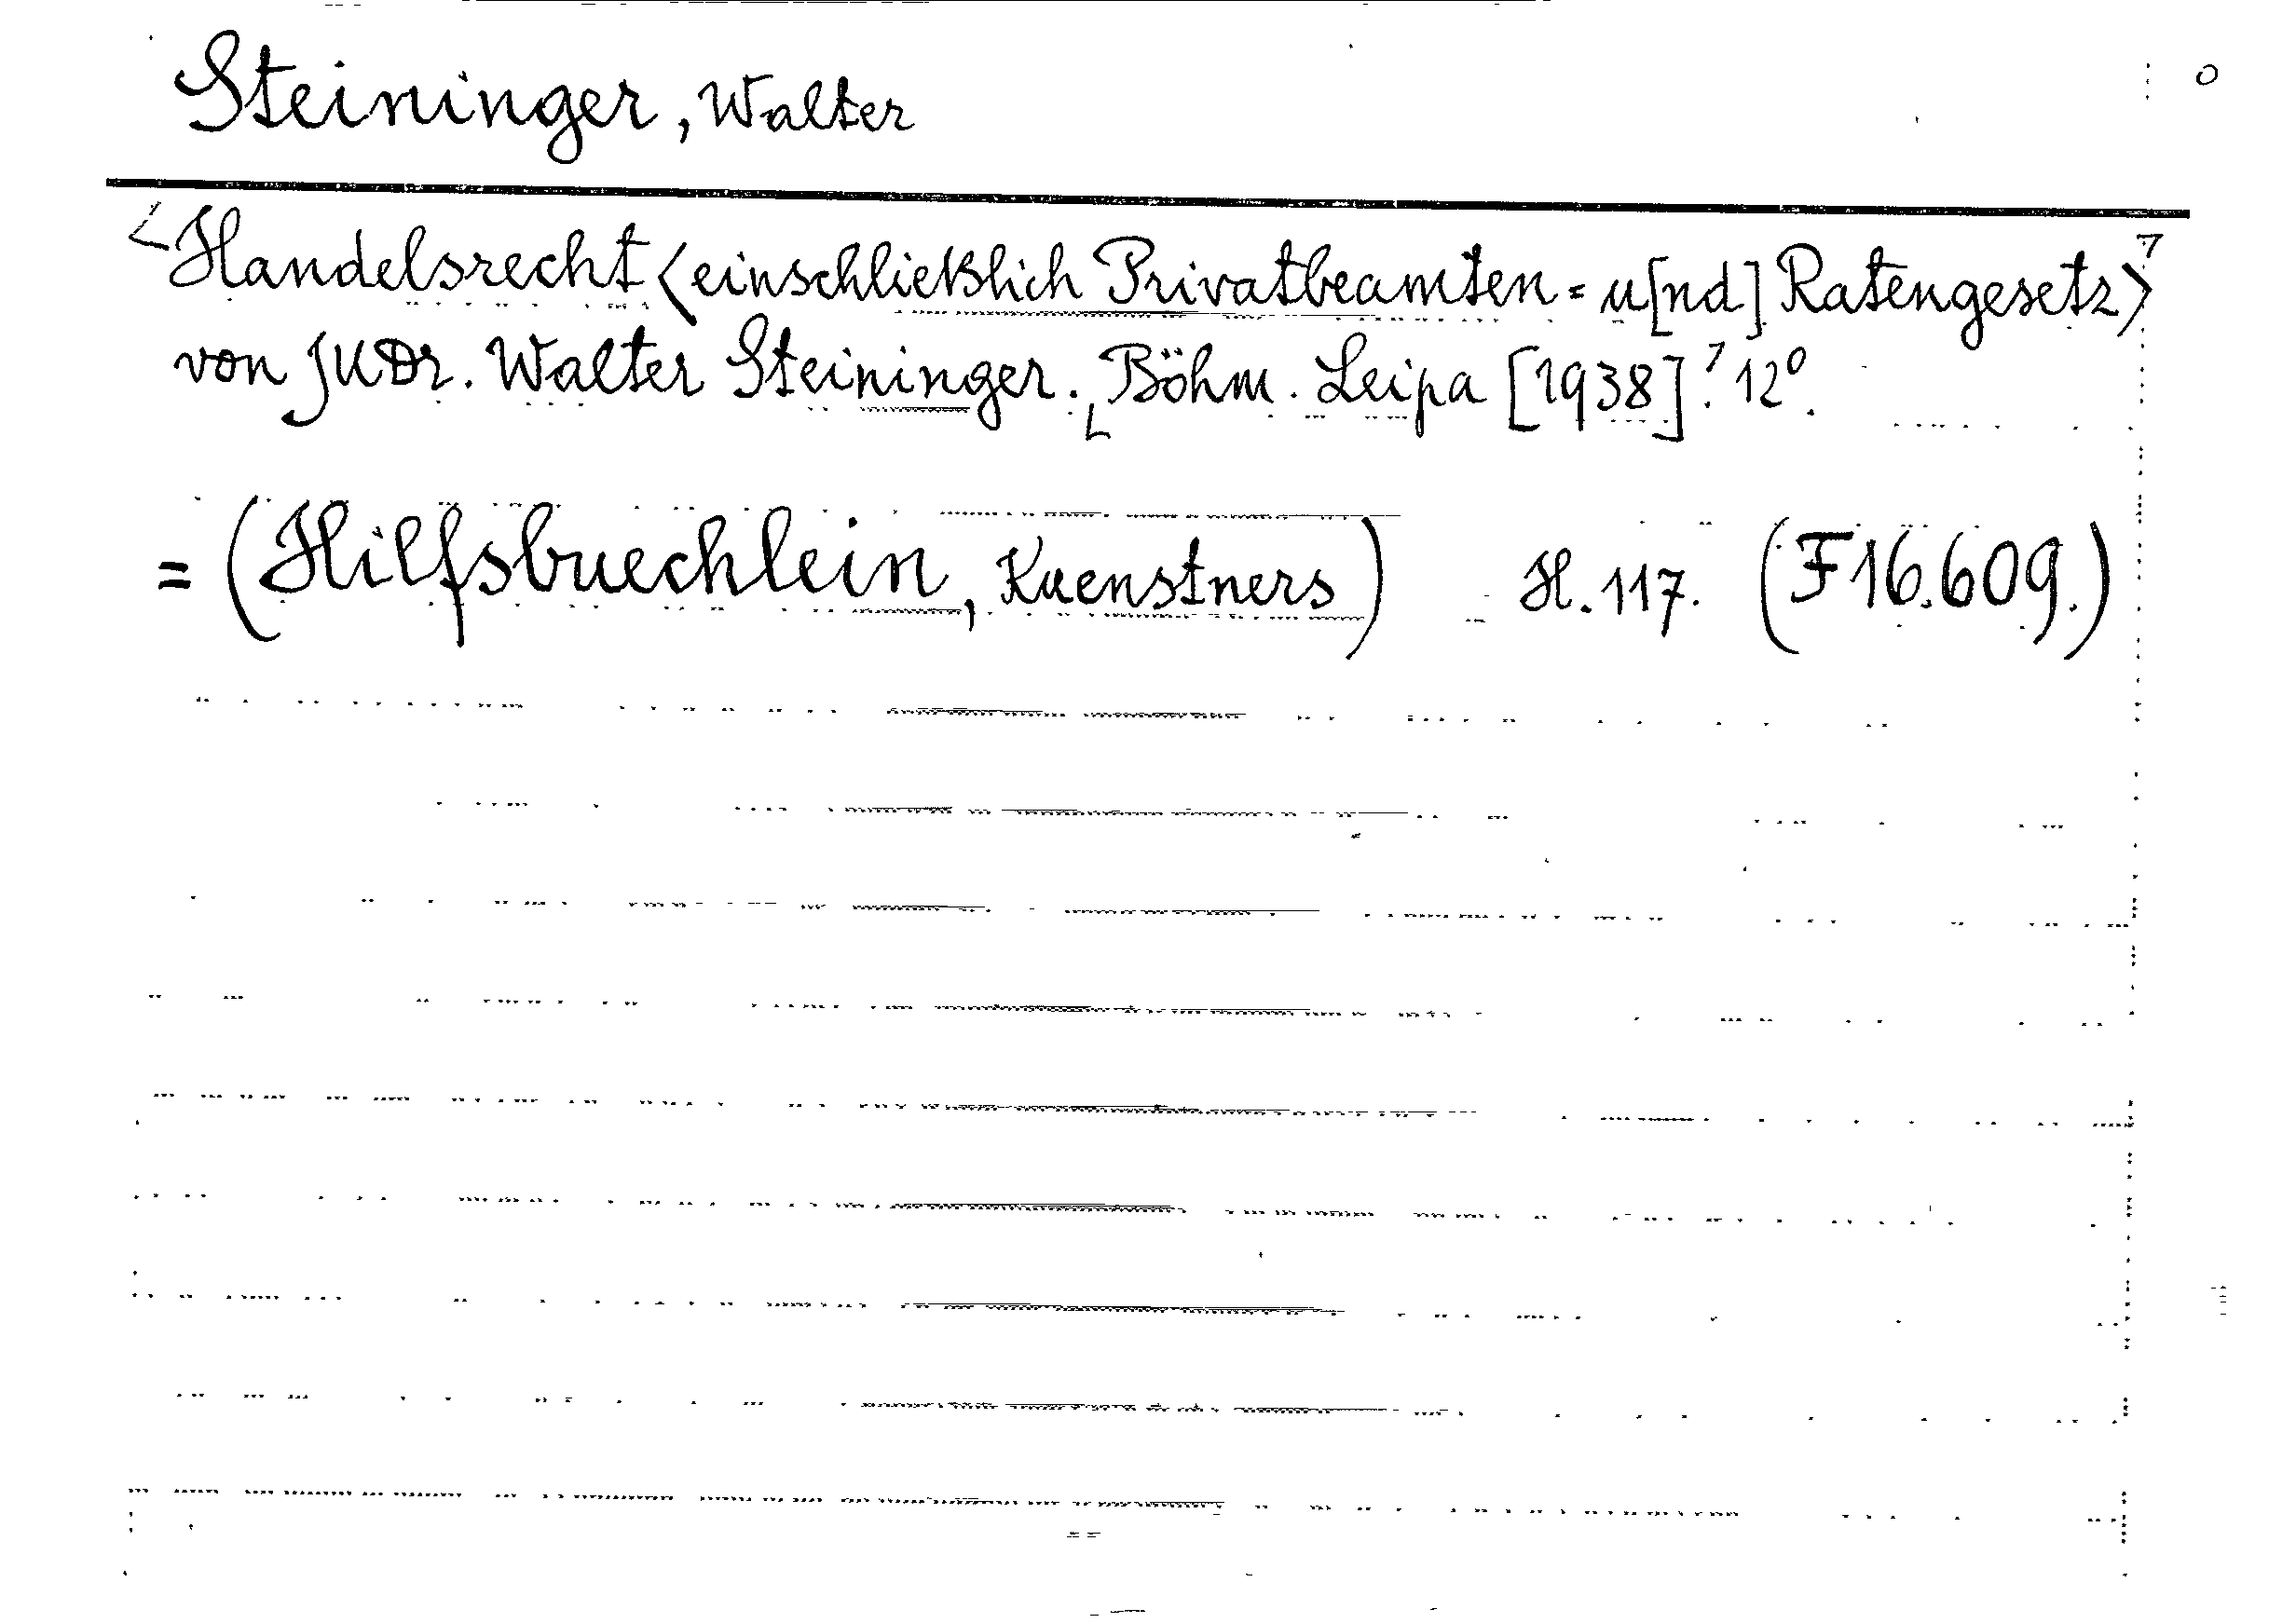 Steininger, Walter
Handelsrecht <einschließlich Privatbeamten= u[nd] Ratengesetz>
von JUDr. Walter Steininger. Böhm. Leipa [1938]. 12°.
= (Hilfsbuechlein, Kuenstners) H. 117. (F 16.609.)